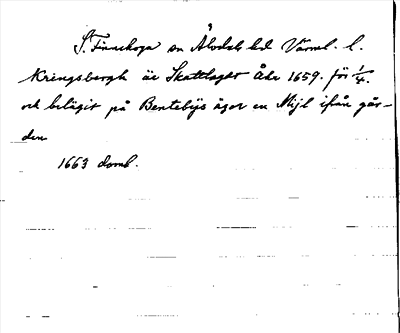 S. Finnskoga sn Älvdals hd Värml. l.
Kringsbergh är Skattlagdt Åhr 1659. för 1/4.
och belägit på Bentebÿs ägor en Mijl ifrån går-
den
1663 domb.